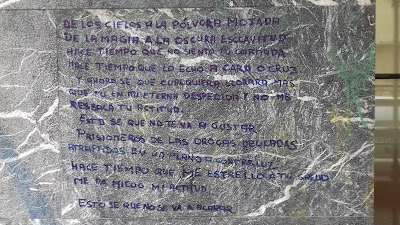 DE LOS CIELOS A LA PÓLVORA MOJADA
DE LA MAGIA A LA OSCURA ESCLAVITUD
HACE TIEMPO QUE NO SIENTO TU LLAMADA
HACE TIEMPO QUE LO ECHO A CARA O CRUZ
Y AHORA SE QUE CUALQUIERA LLORARA MAS
QUE TU EN MI ETERNA DESPEDIDA Y NO ME
RESBALA TU ACTITUD.
ESTO SE QUE NO TE VA A GUSTAR
PRISIONEROS DE LAS DROGAS DELICADAS
ATRAPADAS EN UN PLANO A CONTRALUZ
HACE TIEMPO QUE ME ESTRELLO A TU
ME DA MIEDO MI ACTITUD
ESTO SE QUE NO SE VA A ACABAR